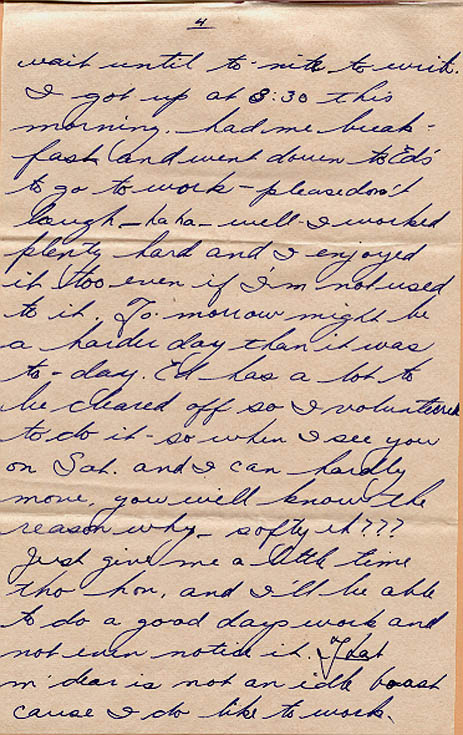 4
wait until to-nite to write.
I got up at 8:30 this
morning. had me break-
fast and went down to Ed's
to go to work - please don't
laugh - ha ha - well I worked
plenty hard and I enjoyed
it too even if I'm not used
to it. To-morrow might be
a harder day than it was
to-day. Ed has a lot to
be cleared off so I volunteered
to do it - so when I see you
on Sat. and I can hardly
move, you will know the
reason why - softy eh???
Just give me a little time
tho hon, and I'll be able
to do a good days work and
not even notice it. That
m'dear is not an idle boast
cause I do like to work.